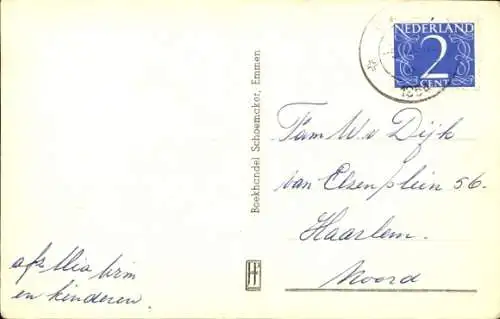 NEDERLAND
2
CENT
Boekhandel Schoemaker, Emmen
Fam W. v Dijk
van Elsenplein 56.
Haarlem.
Noord
afz Mia Wim
en kinderen.